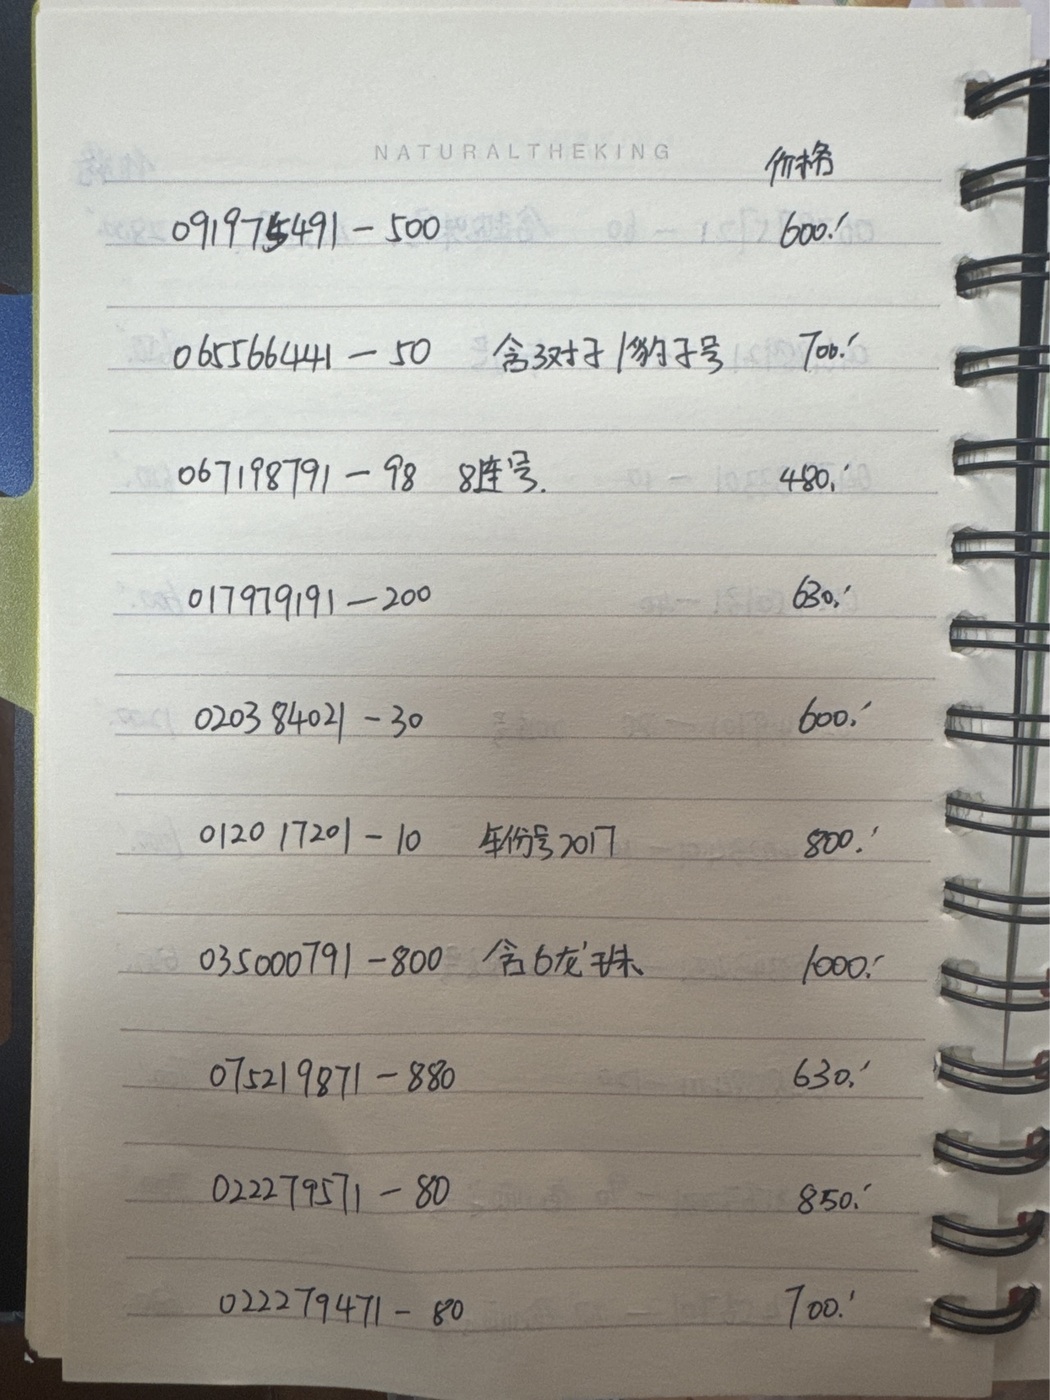 NATURALTHEKING
价格
091975491-500 600.
065566441-50 含3对子/豹子号 700.
067198791-98 8连号. 480.
017979191-200 630.
020384021-30 600.
012017201-10 年份号2017 800.
035000791-800 含6龙珠 1000.
075219871-880 630.
022279571-80 850.
022279471-80 700.